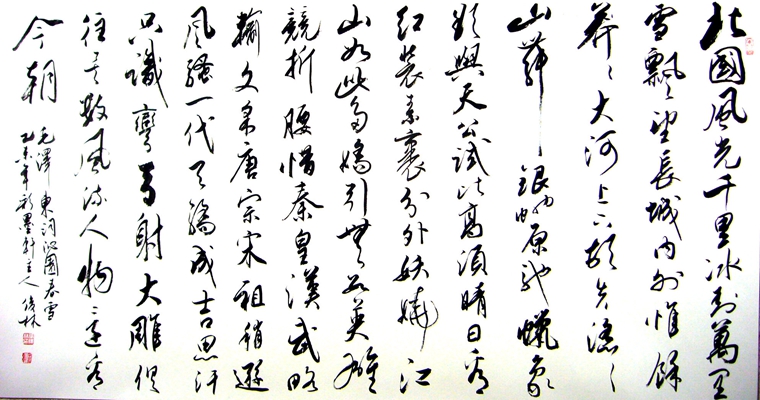 北國風光千里冰封萬里
雪飄望長城内外惟餘
莽々大河上下頓失滔々
山舞銀蛇原馳蠟象
欲與天公試比高須晴日看
紅裝素裹分外妖嬈江
山如此多嬌引無數英雄
競折腰惜秦皇漢武略
輸文采唐宗宋祖稍遜
風騷一代天驕成吉思汗
只識彎弓射大雕俱
往矣數風流人物還看
今朝
毛澤東詞沁園春雪
乙未年彩墨軒主人俊林